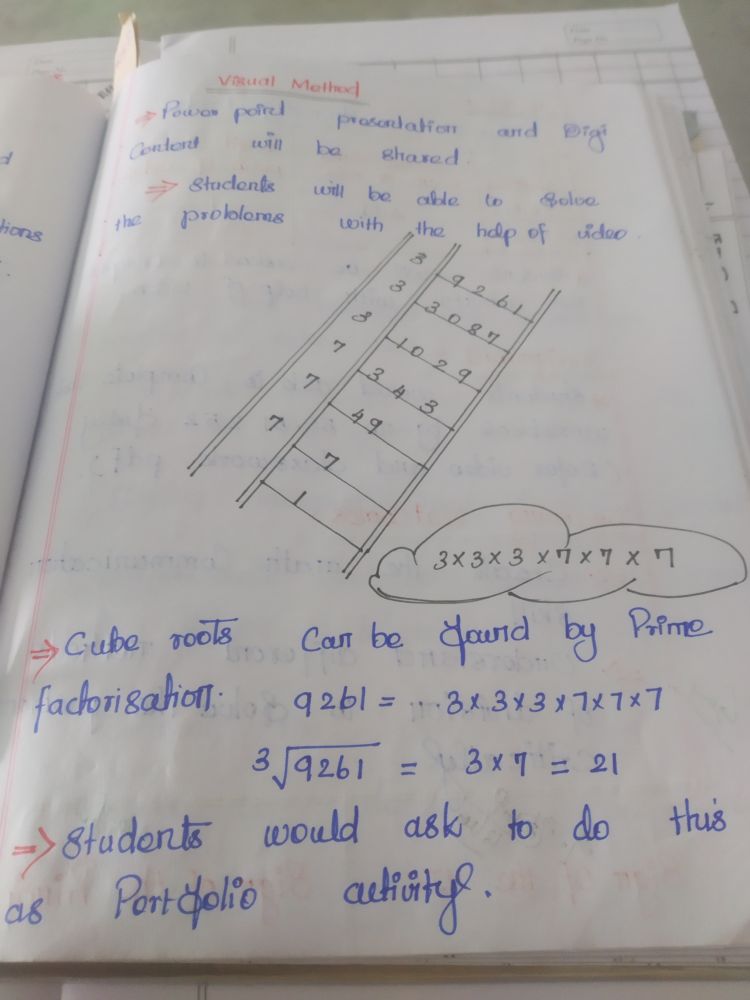 Visual Method
⇒ Power point presentation and Digi
Content will be shared.
⇒ Students will be able to solve
the problems with the help of video.
3 9261
3 3087
3 1029
7 343
7 49
7 7
1
3×3×3×7×7×7
⇒ Cube roots Can be found by Prime
factorisation. 9261 = 3×3×3×7×7×7
∛9261 = 3×7 = 21
⇒ Students would ask to do this
as Portfolio activity.